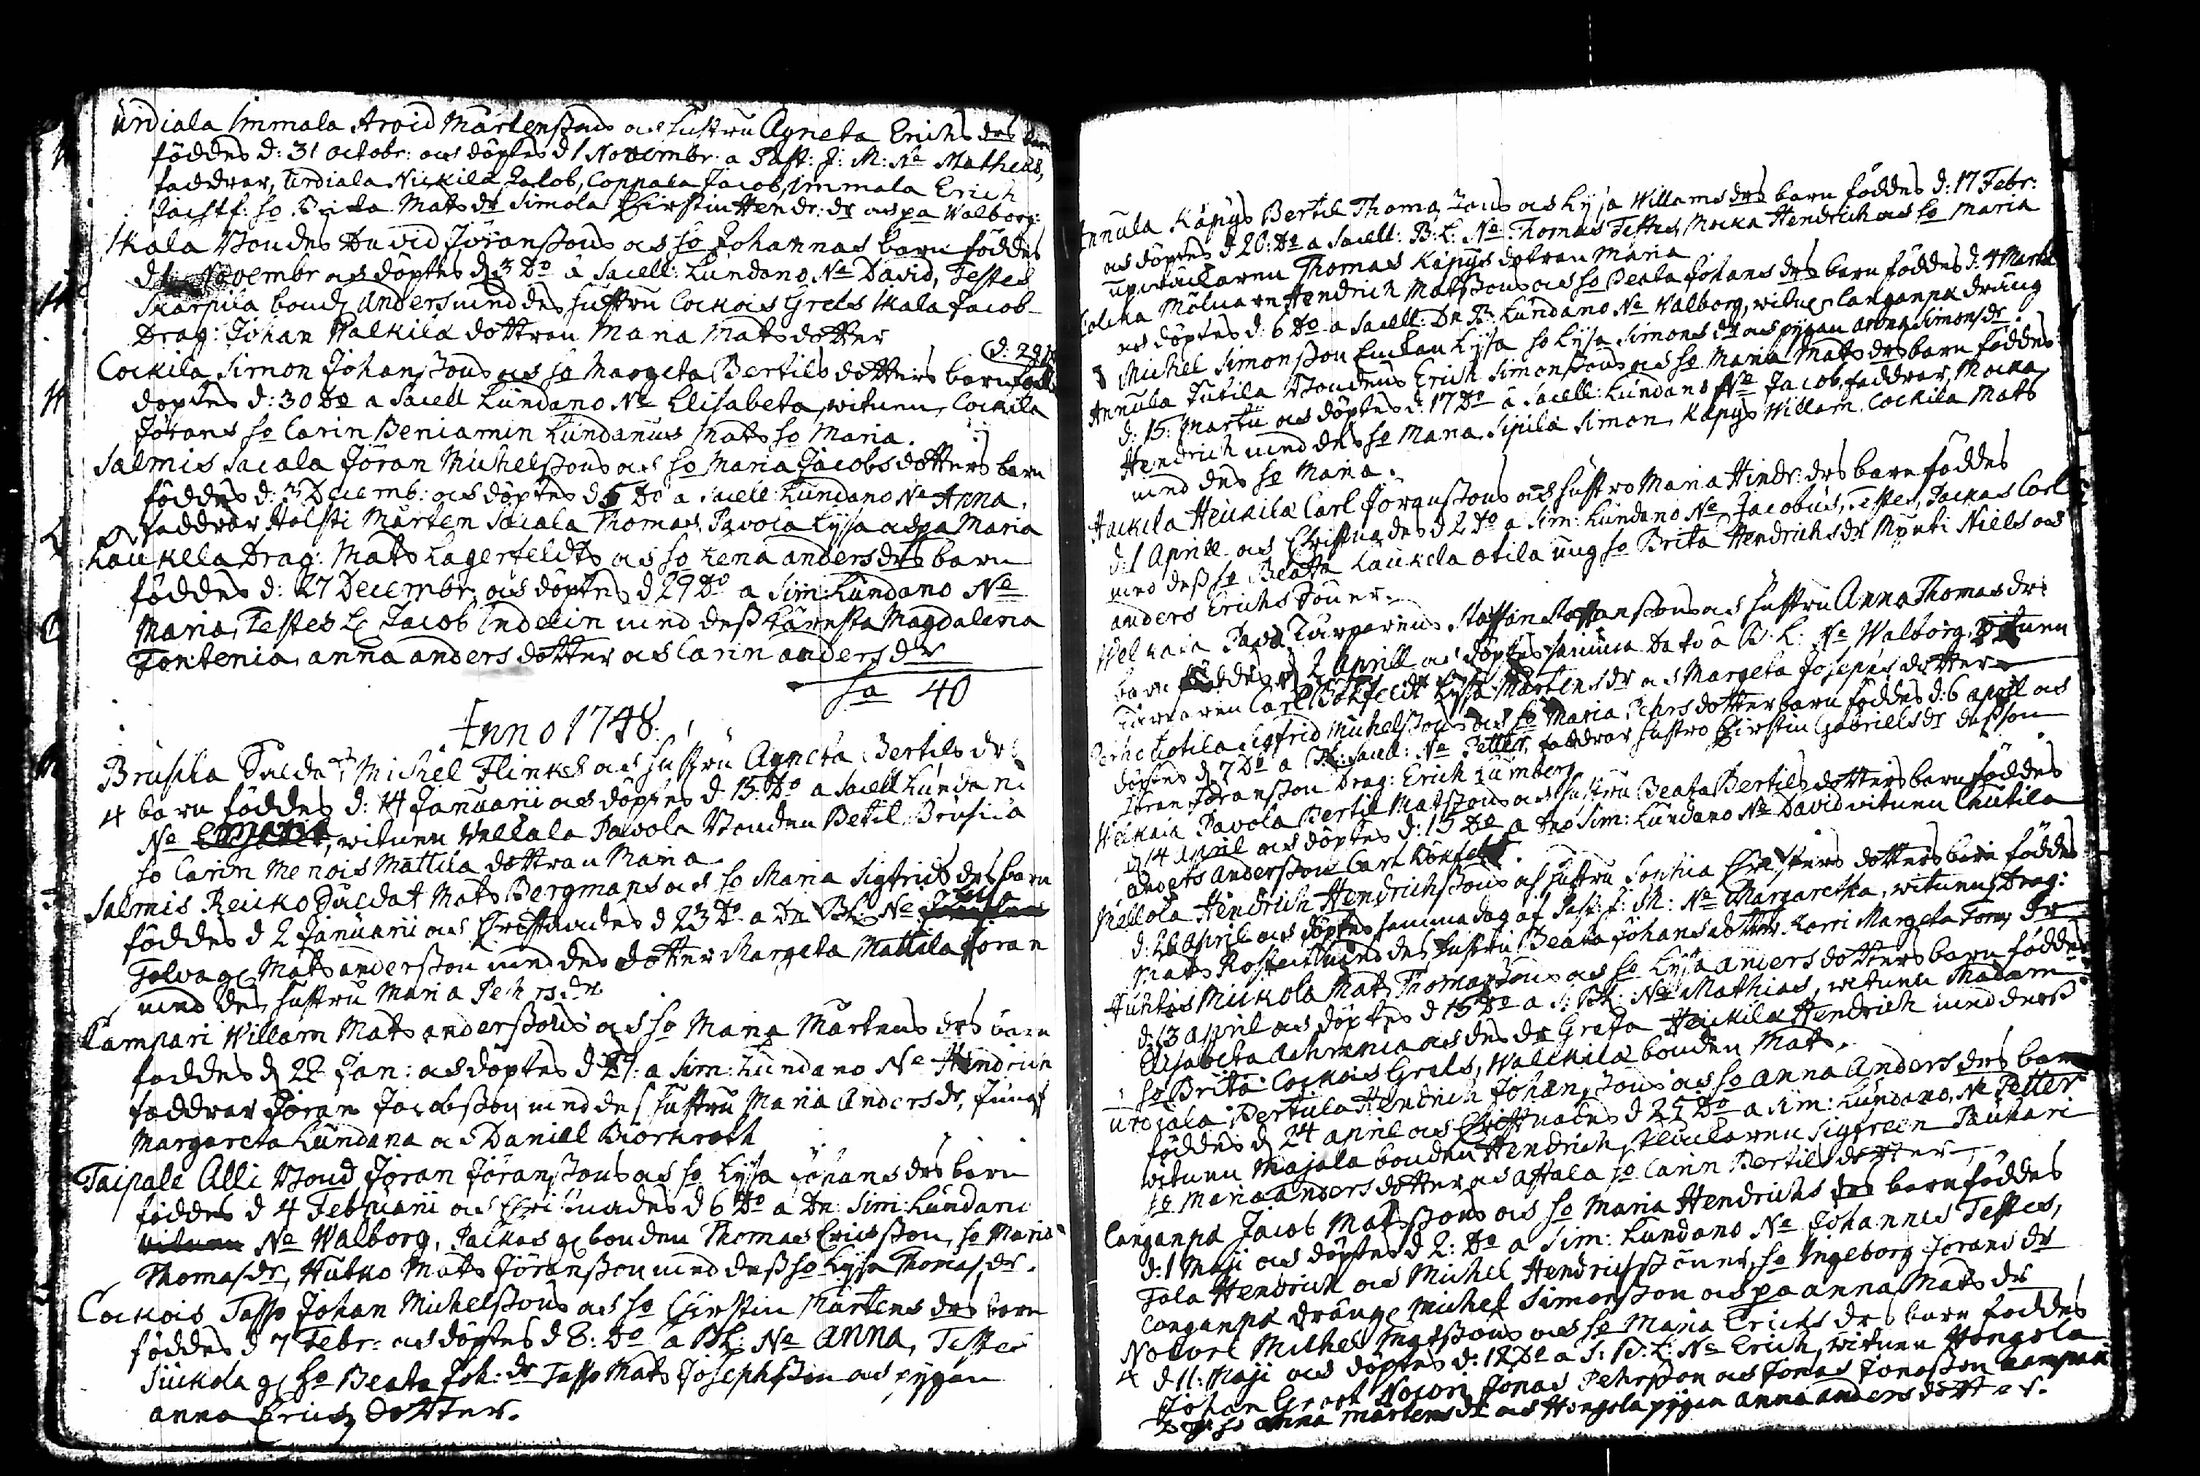 Urdiala Immala Arvid Mårtenssons och hustru Agneta Erichs drs barn
föddes d: 31 octobr: och döptes d 1 Novembr: a Past: J: M: Na Matheus,
faddrar, Urdiala Nickilä Jacob, Coppala Jacob, Immala Erich
so Brita Matsdr Simola Christin Hendr: dr och pa Walborg:
Skala Bondes David Jöranssons och so Johannas barn föddes
d 1 Novembr och döptes d 3 Do a Sacell: Lundano Na David, Testes
Skarpila bond Anders med des hustru Cockois Grels Skala Jacob
Drag: Johan Walkila dottran Maria Matsdotter
(d: 29
Cockila Simon Johanssons och so Margeta Bertils dotters barn född
döptes d: 30 Do a Sacell Lundano Na Elisabeta, witnen, Cockila
Jörans so Carin Beniamin Lundanus Mats so Maria.
Salmis Sacala Jöran Michelssons och so Maria Jacobsdotters barn
föddes d: 3 Decemb: och döptes d 5 Do a Sacell: Lundano Na Anna.
faddrar Holsti Mårten Sacala Thomas, Pavola Lysa och pa Maria
Laukela Drag: Mats Lagerfeldts och so Lena anders drs barn
föddes d: 27 Decembr. och döptes d 29 Do a Sim: Lundano Na
Maria, Testes Jacob Indelin med dess käresta Magdalena
Fontenia, anna anders dotter och Carin anders dr
Sa 40
Anno 1748.
Bruska Saldat Michel Flinks och hustru Agneta Bertils dr:
4 barn föddes d: 14 Januarii och döptes d 15 Do a Sacell Lundano
Na witnen Wellala Pavola Bonden Betil, Bruska
so Carin Menois Mattila dottran Maria
Salmis Reuko Saldat Mats Bergmans och so Maria Sigfrids drs barn
föddes d 2 Januarii och Christnades d 23 Do a Dn BL Na
Tolva Mats andersson med des dotter Margeta Mattila Jöran
med des hustru Maria Pehrsdr
Kampari Willam Mats anderssons och so Maria Mårtens drs barn
föddes d 22 Jan: och döptes d 27: a Sim: Lundano Na Hendrich
faddrar Jöran Jacobsson med des hustru Maria Anders dr, Jungf
Margareta Lundana och Daniel Biörkroth
Taipale Alli Bond Jöran Jöranssons och so Lysa Johans drs barn
föddes d 4 Februarii och Christnades d 6 Do a Dn: Sim: Lundano
Na Walborg, Packas bonden Thomas Ericsson, so Maria
Thomasdr, Hutko Mats Jöransson med dess so Lysa Thomasdr.
Cockois Tasso Johan Michelssons och so Christin Mårtens drs barn
föddes d 7 Febr: och döptes d 8: Do a BL: Na Anna, Testes
Siukola so Beata Joh: dr Tasso Mats Josephsson och pygan
anna Erichs dotter.
Annula Käpys Bertil Thomassons och Lysa Willams drs barn föddes d: 17 Febr:
och döptes d 20: Do a Sacell: B:L: Na Thomas Testes, Mocka Hendrich och so Maria
Thomas Käpys dotran Maria
Mölnaren Hendrich Matssons och so Beata Johans drs barn föddes d: 4 Martii
och döptes d: 6 Do a Sacell: Dn B: Lundano Na Walborg, witnen Langanpä dräng
Michel Simonsson Enckan Lysa so Lysa Simons dr och pygan anna Simonsdr
Annula Tutila Bondens Erich Simonssons och so Maria Mats drs barn föddes
d: 15: Martii och döptes d: 17 Do a Sacell: Lundano Na Jacob, faddrar, Mocka
Hendrich med des so Maria, Sipilä Simon, Käpys Willam, Cockila Mats
med des so Maria.
Huckila Heickilä Carl Jöranssons och hustro Maria Hindr: drs barn föddes
d: 1 Aprill och Christnades d 2 Do a Sim: Lundano Na Jacobus, Testes, Packas Carl
med dess so Beata Laukela otila ung so Brita Hendrichsdr Mynti Niels och
anders Erichs söner.
Wel Staffan Staffanssons och hustru Anna Thomasdrs
barn föddes d 2 Aprill och döptes samma Dato a B: L: Na Walborg, witnen
Carl Lysa Mårtensdr och Margeta Josephs dotter
Sigfrid Michelssons och so Maria Pehrs dotter barn föddes d: 6 april och
döptes d 7 Do a BL: Sacell: Na Petter, faddrar hustro Christin Gabrielsdr desson
Jöran Jöransson Drag: Erich Lumberg
Weckaia Pavola Bertil Matssons och hustru Beata Bertils dotters barn föddes
d 14 april och döptes d: 15 Do a Dno Sim: Lundano Na David witnen Chutila
Anders Andersson Carl
Mellola Hendrich Hendrichssons och hustru Sophia Christers dotters barn föddes
d: 26 april och döptes samma dag af Past: J: M: Na Margaretha, witnen, Drag:
Mats Rosten med des hustru Beata Johansdotter, Karri Margeta dr
Huhtis Mickola Mats Thomassons och so Lysa anders dotters barn föddes
d: 13 april och döptes d 15 Do a S: BL: Na Mathias, witnen Madam
Elisabeta och des dr Greta Heickilä Hendrich med dess
so Brita Cockois Grels, Walckila bonden Mats.
Urdiala Bertula Hendrich Johanssons och so Anna Anders drs barn
föddes d 24 april och Christnades d 25 Do a Sim: Lundano, Na Petter
witnen Majala bonden Hendrich, Sigfreen Paukari
so Maria anders dotter och Attala so Carin Bertils dotter
Langanpä Jacob Matssons och so Maria Hendrichs drs barn föddes
d: 1 Maji och döptes d 2: Do a Sim: Lundano Na Johannes Testes,
Tola Hendrich och Michel Hendrichssöner, so Ingeborg Jörans dr
Langanpä dräng Michel Simonsson och pa anna Mats dr
Nohori Michel Matssons och so Maria Erichs drs barn föddes
4 d 11: Maji och döptes d: 12 Do a S: B: L: Na Erich, witnen Hongola
Johan Groot Nohori Jonas Pehrsson och Jonas Jonasson
so anna mårtens dr och Hongola pygan anna anders dotter.